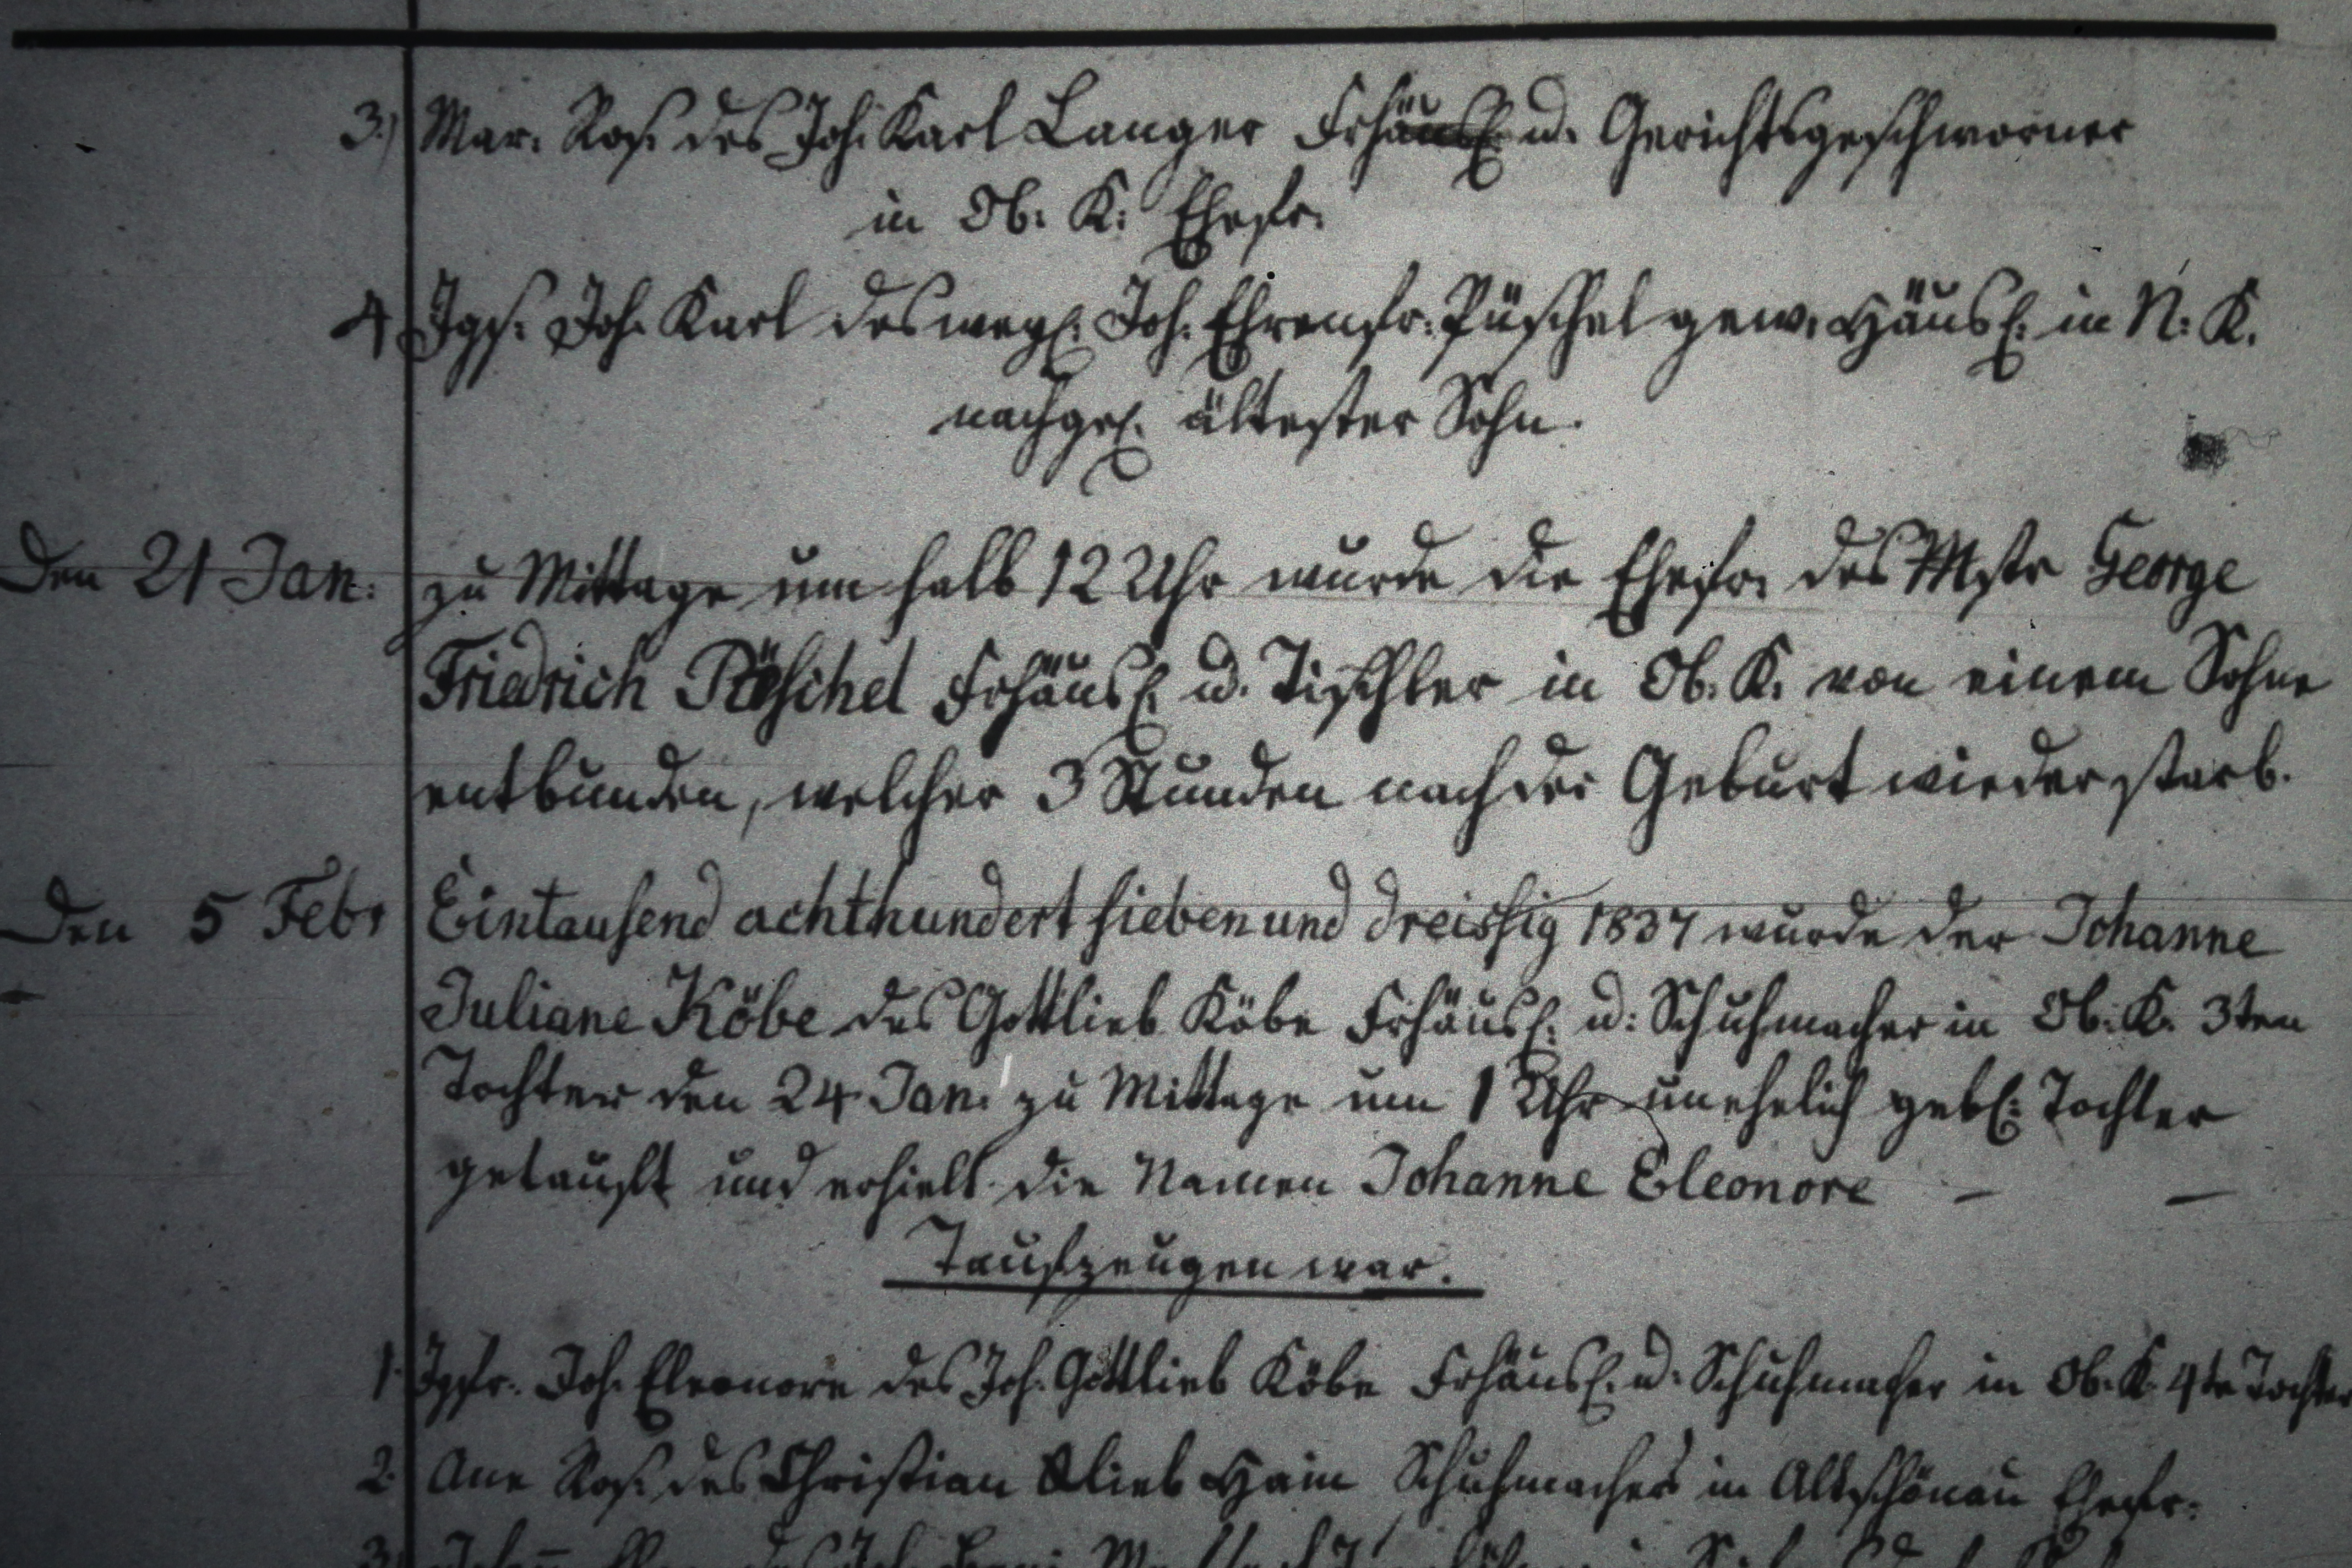 3.) Mar. Ros. des Joh. Karl Langer Frhäusl. u. Gerichtsgeschworner
in Ob. K. Ehefr.
4 Jgs. Joh. Karl des wegl. Joh. Ehrenfr. Püschel gew. Häusl. in N. K.
nachgel. ältester Sohn.
Den 21 Jan. zu Mittage um halb 12 Uhr wurde die Ehefr. des Mstr George
Friedrich Püschel Frhäusl. u. Tischler in Ob. K. von einem Sohne
entbunden, welcher 3 Stunden nach der Geburt wieder starb.
Den 5 Febr Eintausend achthundert sieben und dreissig 1837 wurde der Johanne
Juliane Köbe des Gottlieb Köbe Frhäusl. u. Schuhmacher in Ob. K. 3ten
Tochter den 24 Jan. zu Mittage um 1 Uhr unehelich gebl. Tochter
getauft und erhielt die Namen Johanne Eleonore — —
Taufzeugen war.
1. Jgfr. Joh. Eleonore des Joh. Gottlieb Köbe Frhäusl. u. Schuhmacher in Ob. K. 4te Tochter
2. Ane Ros. des Christian Glieb Hain Schuhmachers in Altschönau Ehefr.
3.